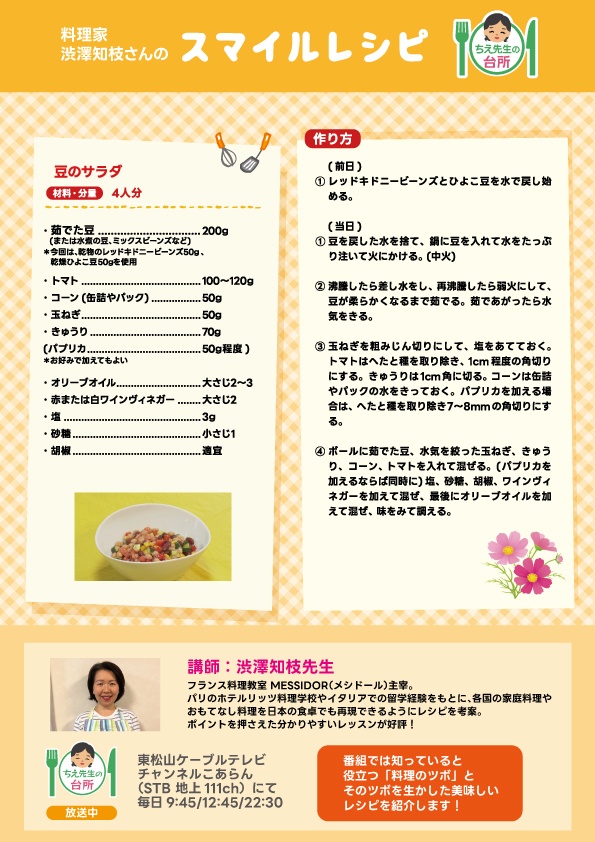 料理家
渋澤知枝さんの
スマイルレシピ
ちえ先生の
台所
豆のサラダ
材料・分量 4人分
・茹でた豆 ................................ 200g
(または水煮の豆、ミックスビーンズなど)
＊今回は、乾物のレッドキドニービーンズ50g、
乾燥ひよこ豆50gを使用
・トマト ..................................... 100〜120g
・コーン (缶詰やパック) ............... 50g
・玉ねぎ..................................... 50g
・きゅうり .................................. 70g
(パプリカ................................... 50g程度 )
＊お好みで加えてもよい
・オリーブオイル.......................... 大さじ2〜3
・赤または白ワインヴィネガー ....... 大さじ2
・塩 .......................................... 3g
・砂糖 ....................................... 小さじ1
・胡椒 ....................................... 適宜
作り方
( 前日 )
① レッドキドニービーンズとひよこ豆を水で戻し始
める。
( 当日 )
① 豆を戻した水を捨て、鍋に豆を入れて水をたっぷ
り注いて火にかける。(中火)
② 沸騰したら差し水をし、再沸騰したら弱火にして、
豆が柔らかくなるまで茹でる。茹であがったら水
気をきる。
③ 玉ねぎを粗みじん切りにして、塩をあてておく。
トマトはへたと種を取り除き、1cm 程度の角切り
にする。きゅうりは1cm 角に切る。コーンは缶詰
やパックの水をきっておく。パプリカを加える場
合は、へたと種を取り除き7〜8mmの角切りにす
る。
④ ボールに茹でた豆、水気を絞った玉ねぎ、きゅう
り、コーン、トマトを入れて混ぜる。(パプリカを
加えるならば同時に) 塩、砂糖、胡椒、ワインヴィ
ネガーを加えて混ぜ、最後にオリーブオイルを加
えて混ぜ、味をみて調える。
講師：渋澤知枝先生
フランス料理教室 MESSIDOR(メシドール)主宰。
パリのホテルリッツ料理学校やイタリアでの留学経験をもとに、各国の家庭料理や
おもてなし料理を日本の食卓でも再現できるようにレシピを考案。
ポイントを押さえた分かりやすいレッスンが好評！
ちえ先生の
台所
放送中
東松山ケーブルテレビ
チャンネルこあらん
（STB 地上 111ch）にて
毎日 9:45/12:45/22:30
番組では知っていると
役立つ「料理のツボ」と
そのツボを生かした美味しい
レシピを紹介します！